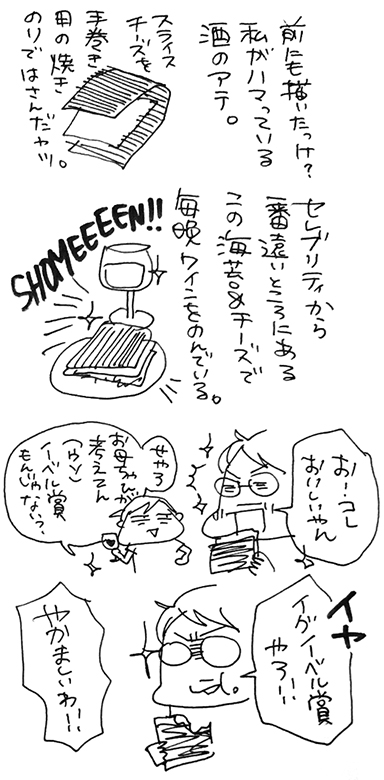 前にも描いたっけ?
私がハマっている
酒のアテ。
スライス
チーズを
手巻き
用の焼き
のりではさんだヤツ。
セレブリティから
一番遠いところにある
この海苔&チーズで
毎晩ワインをのんでいる。
SHOMEEEEN!!
おー・コレ
おいしいやん
せやろ
お母ちゃんが
考えてん
(ウソ)
イーベル賞
もんじゃない?
イヤ
イグイーベル賞
やろ!!
やかましいわ!!